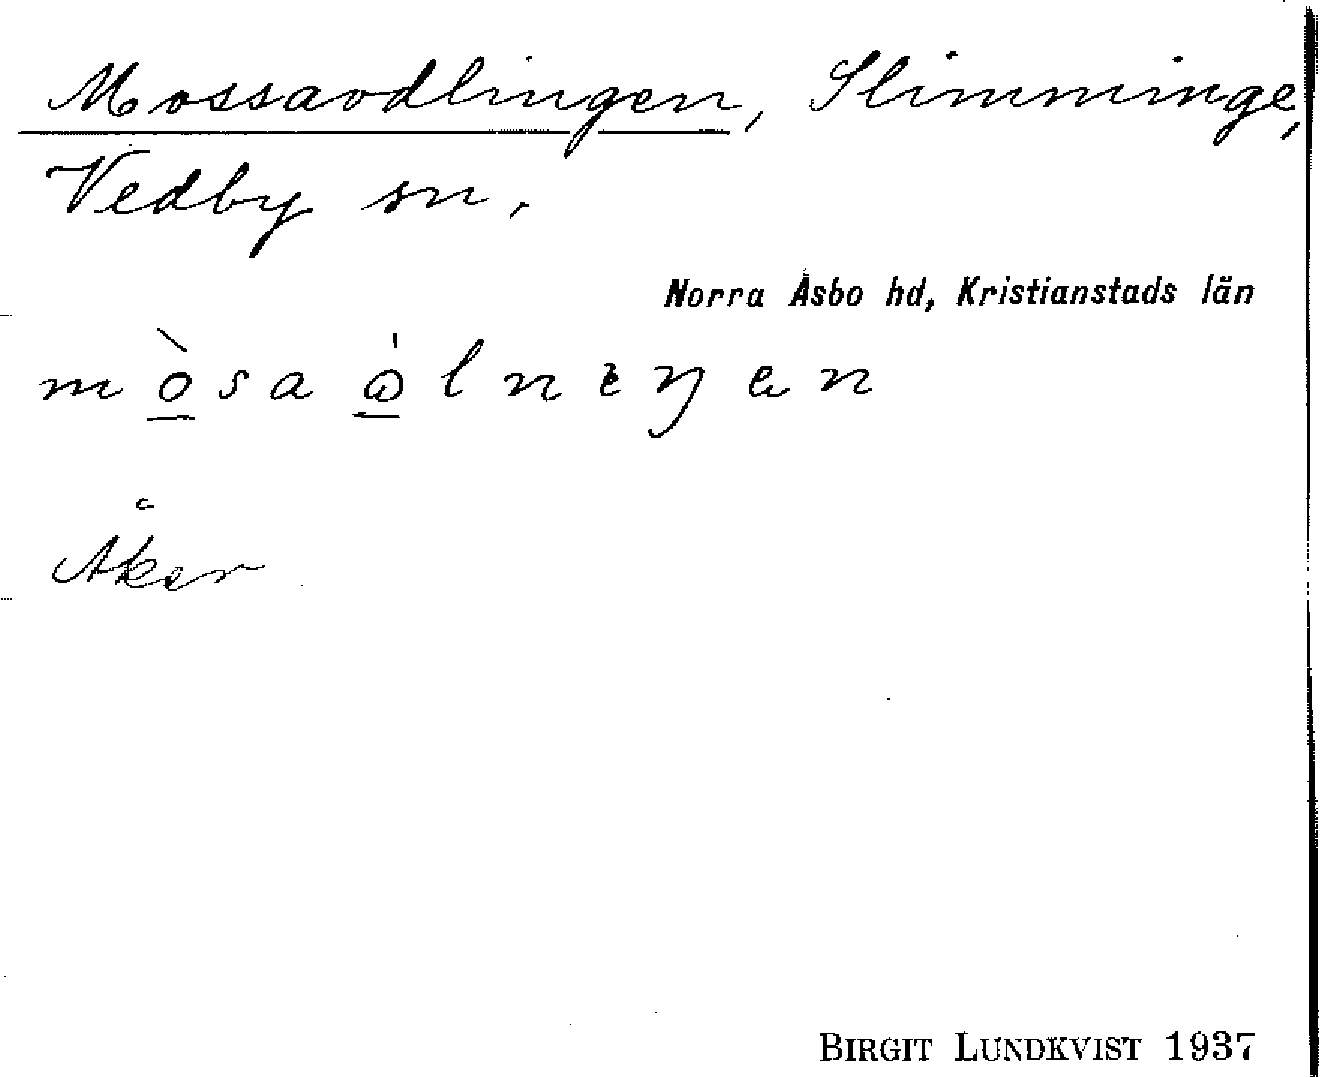 Mossaodlingen, Slimminge,
Vedby sn.
Norra Åsbo hd, Kristianstads län
mòsaólneŋen
Åker
BIRGIT LUNDKVIST 1937